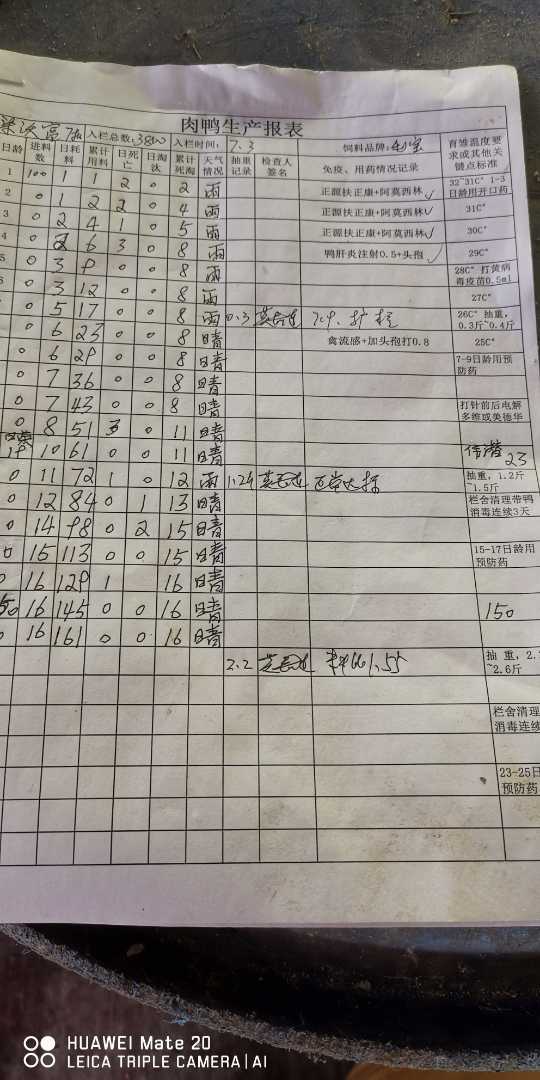 肉鸭生产报表
入栏总数:3800 入栏时间: 7.3 饲料品牌:
日龄 进料数 日耗料 累计用料 日死亡 日淘汰 累计死淘 天气情况 抽重记录 检查人签名 免疫、用药情况记录 育雏温度要求或其他关键点标准
1 100 1 1 2 0 2 雨 正源扶正康+阿莫西林√ 32~31C° 1-3日龄用开口药
2 0 1 2 2 0 4 雨 正源扶正康+阿莫西林√ 31C°
3 0 2 4 1 0 5 雨 正源扶正康+阿莫西林√ 30C°
4 0 2 6 3 0 8 雨 鸭肝炎注射0.5+头孢√ 29C°
0 3 9 0 0 8 雨 28C° 打黄病毒疫苗0.5ml
0 3 12 0 0 8 雨 27C°
0 5 17 0 0 8 雨 0.3 26C° 抽重,0.3斤~0.4斤
0 6 23 0 0 8 晴 禽流感+加头孢打0.8 25C°
0 6 29 0 0 8 晴 7-9日龄用预防药
0 7 36 0 0 8 晴
0 7 43 0 0 8 晴 打针前后电解多维或美德华
0 8 51 3 0 11 晴
10 61 0 0 11 晴 23
0 11 72 1 0 12 雨 1.24 正常达标 抽重,1.2斤~1.5斤
0 12 84 0 1 13 晴 栏舍清理带鸭消毒连续3天
0 14 98 0 2 15 晴
0 15 113 0 0 15 晴 15-17日龄用预防药
0 16 129 1 16 晴
50 16 145 0 0 16 晴 150
0 16 161 0 0 16 晴
2.2 抽重,2. ~2.6斤
栏舍清理消毒连续
23-25日预防药
HUAWEI Mate 20
LEICA TRIPLE CAMERA|AI